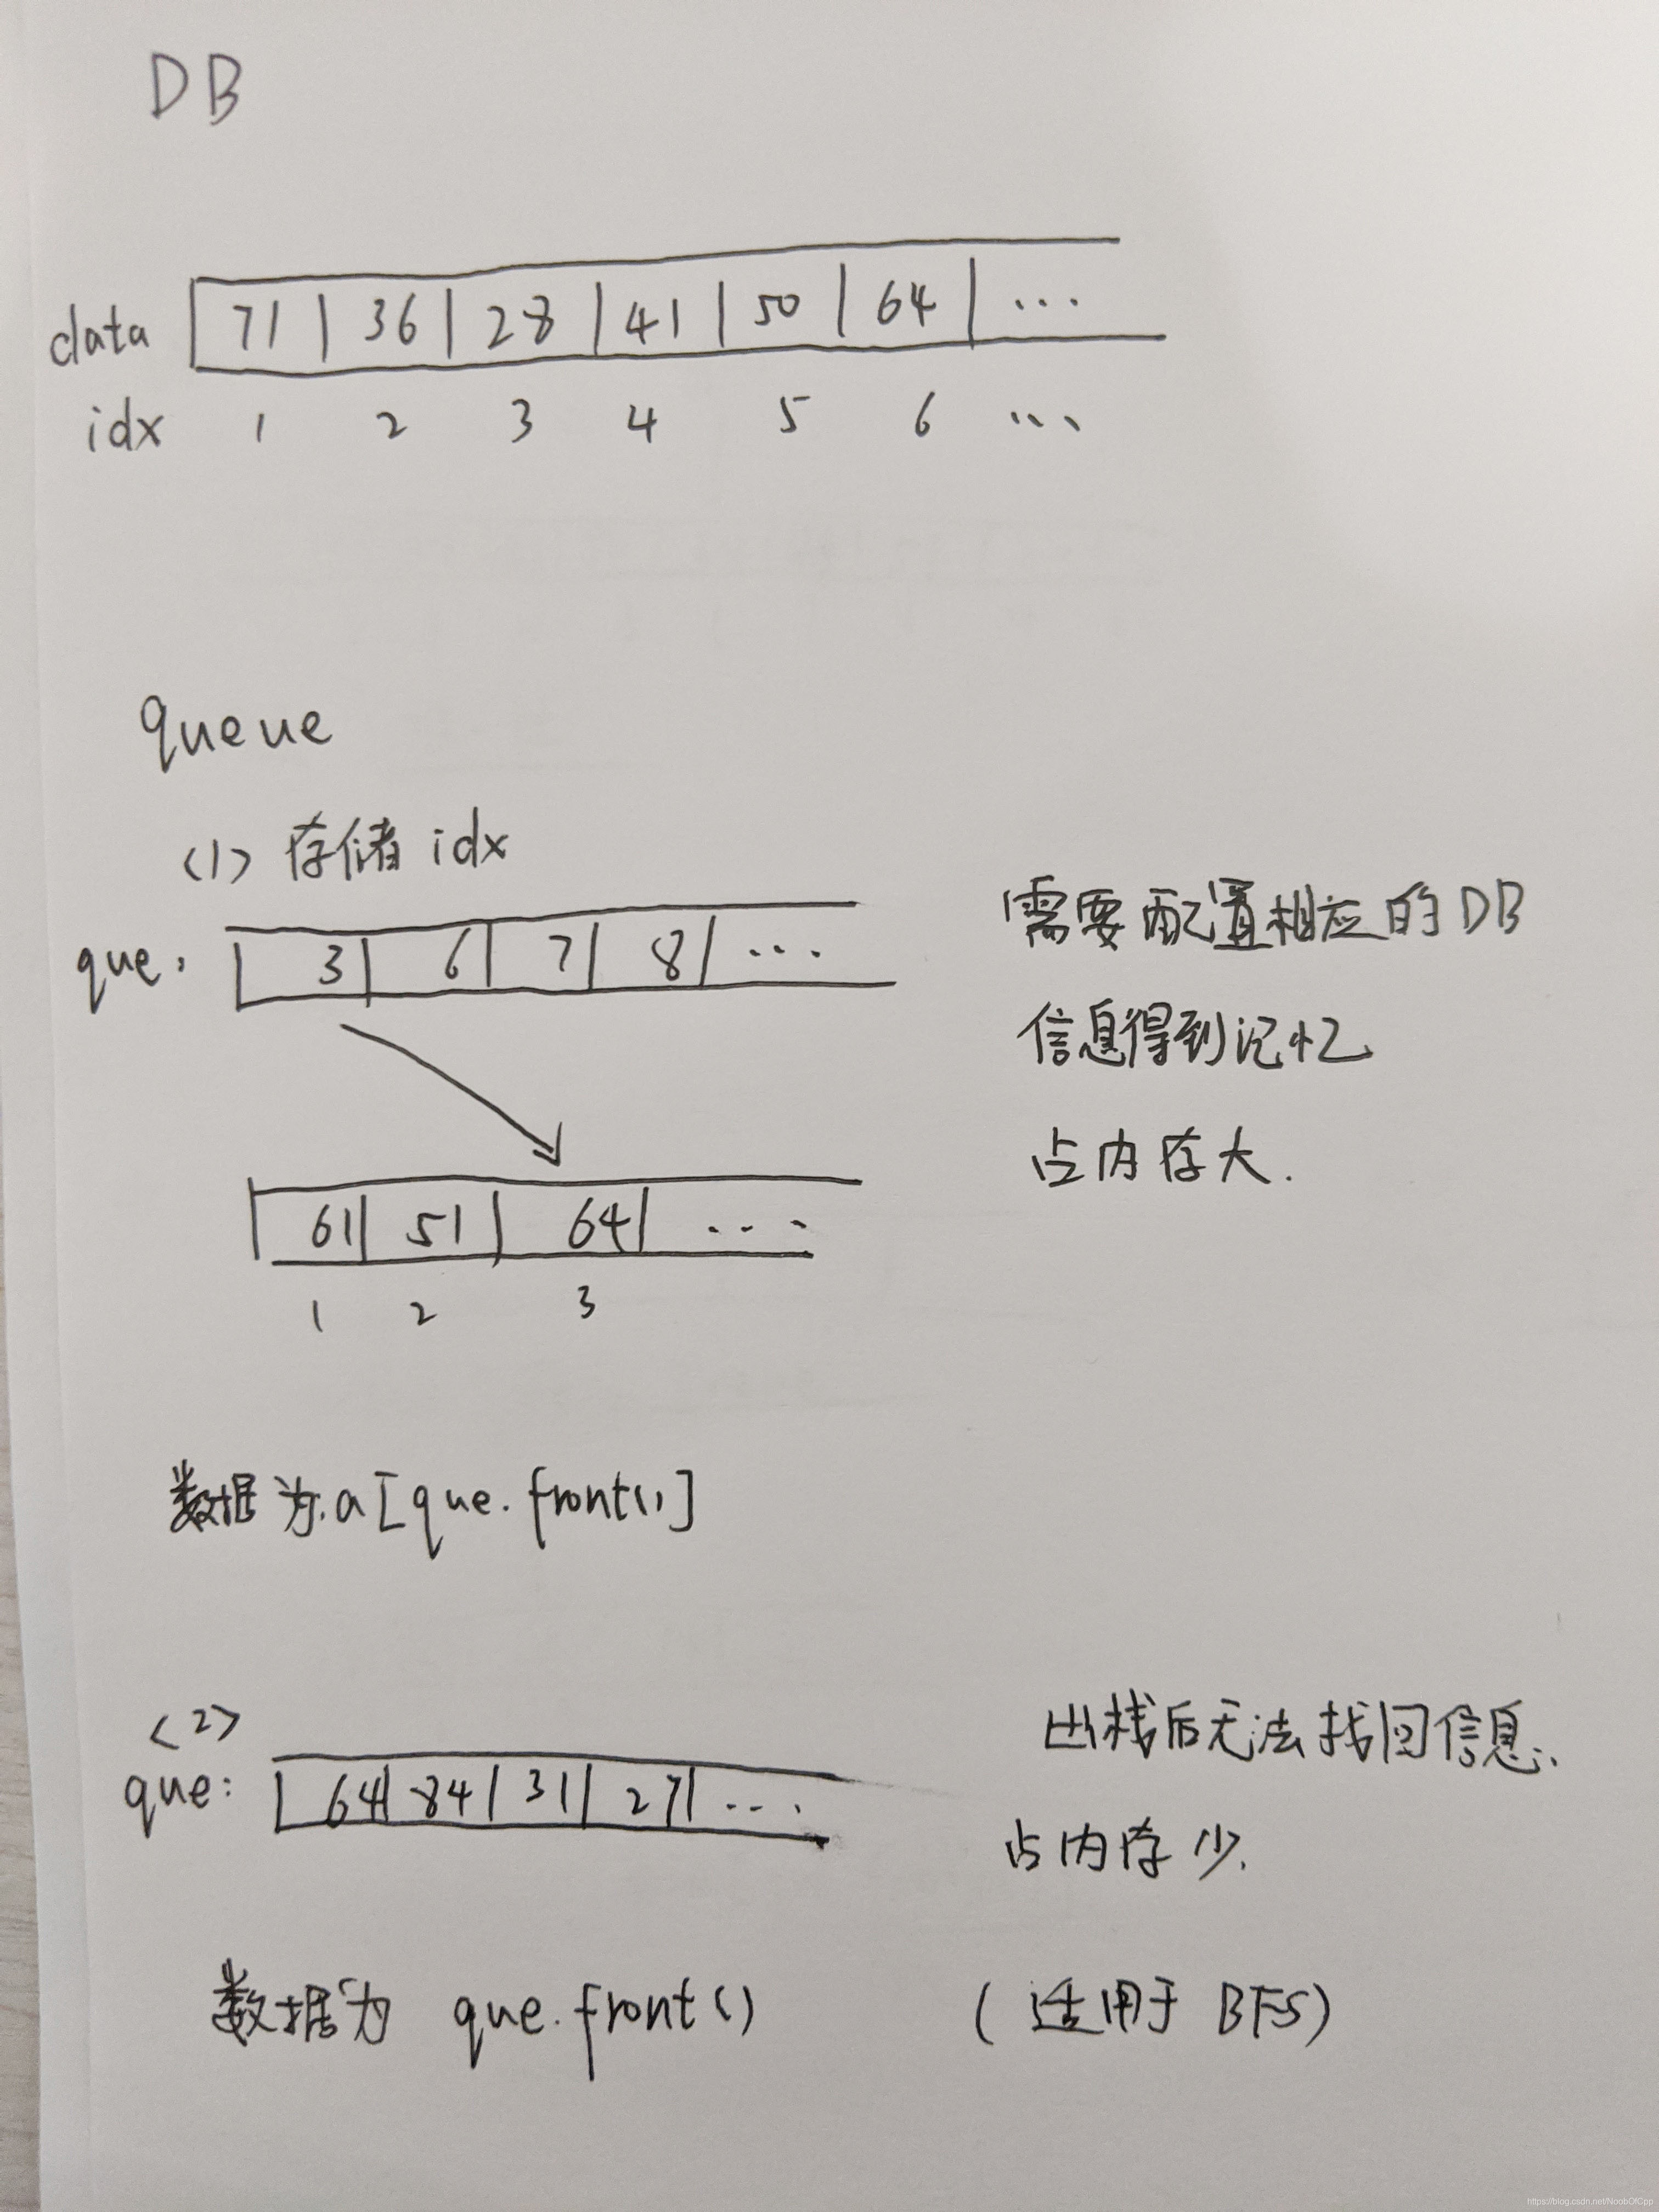 DB
data 71 36 28 41 50 64 ...
idx 1 2 3 4 5 6 ...
queue
<1> 存储 idx
que: 3 6 7 8 ...
需要配置相应的DB
信息得到记忆
占内存大.
61 51 64 ...
1 2 3
数据为a[que.front()]
<2>
que: 64 84 31 27 ...
出栈后无法找回信息.
占内存少.
数据为 que.front() (适用于 BFS)
https://blog.csdn.net/NoobOfCpp